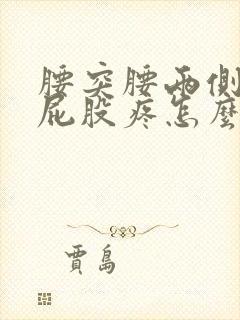 腰突腰两侧
屁股疼怎麽
賈島